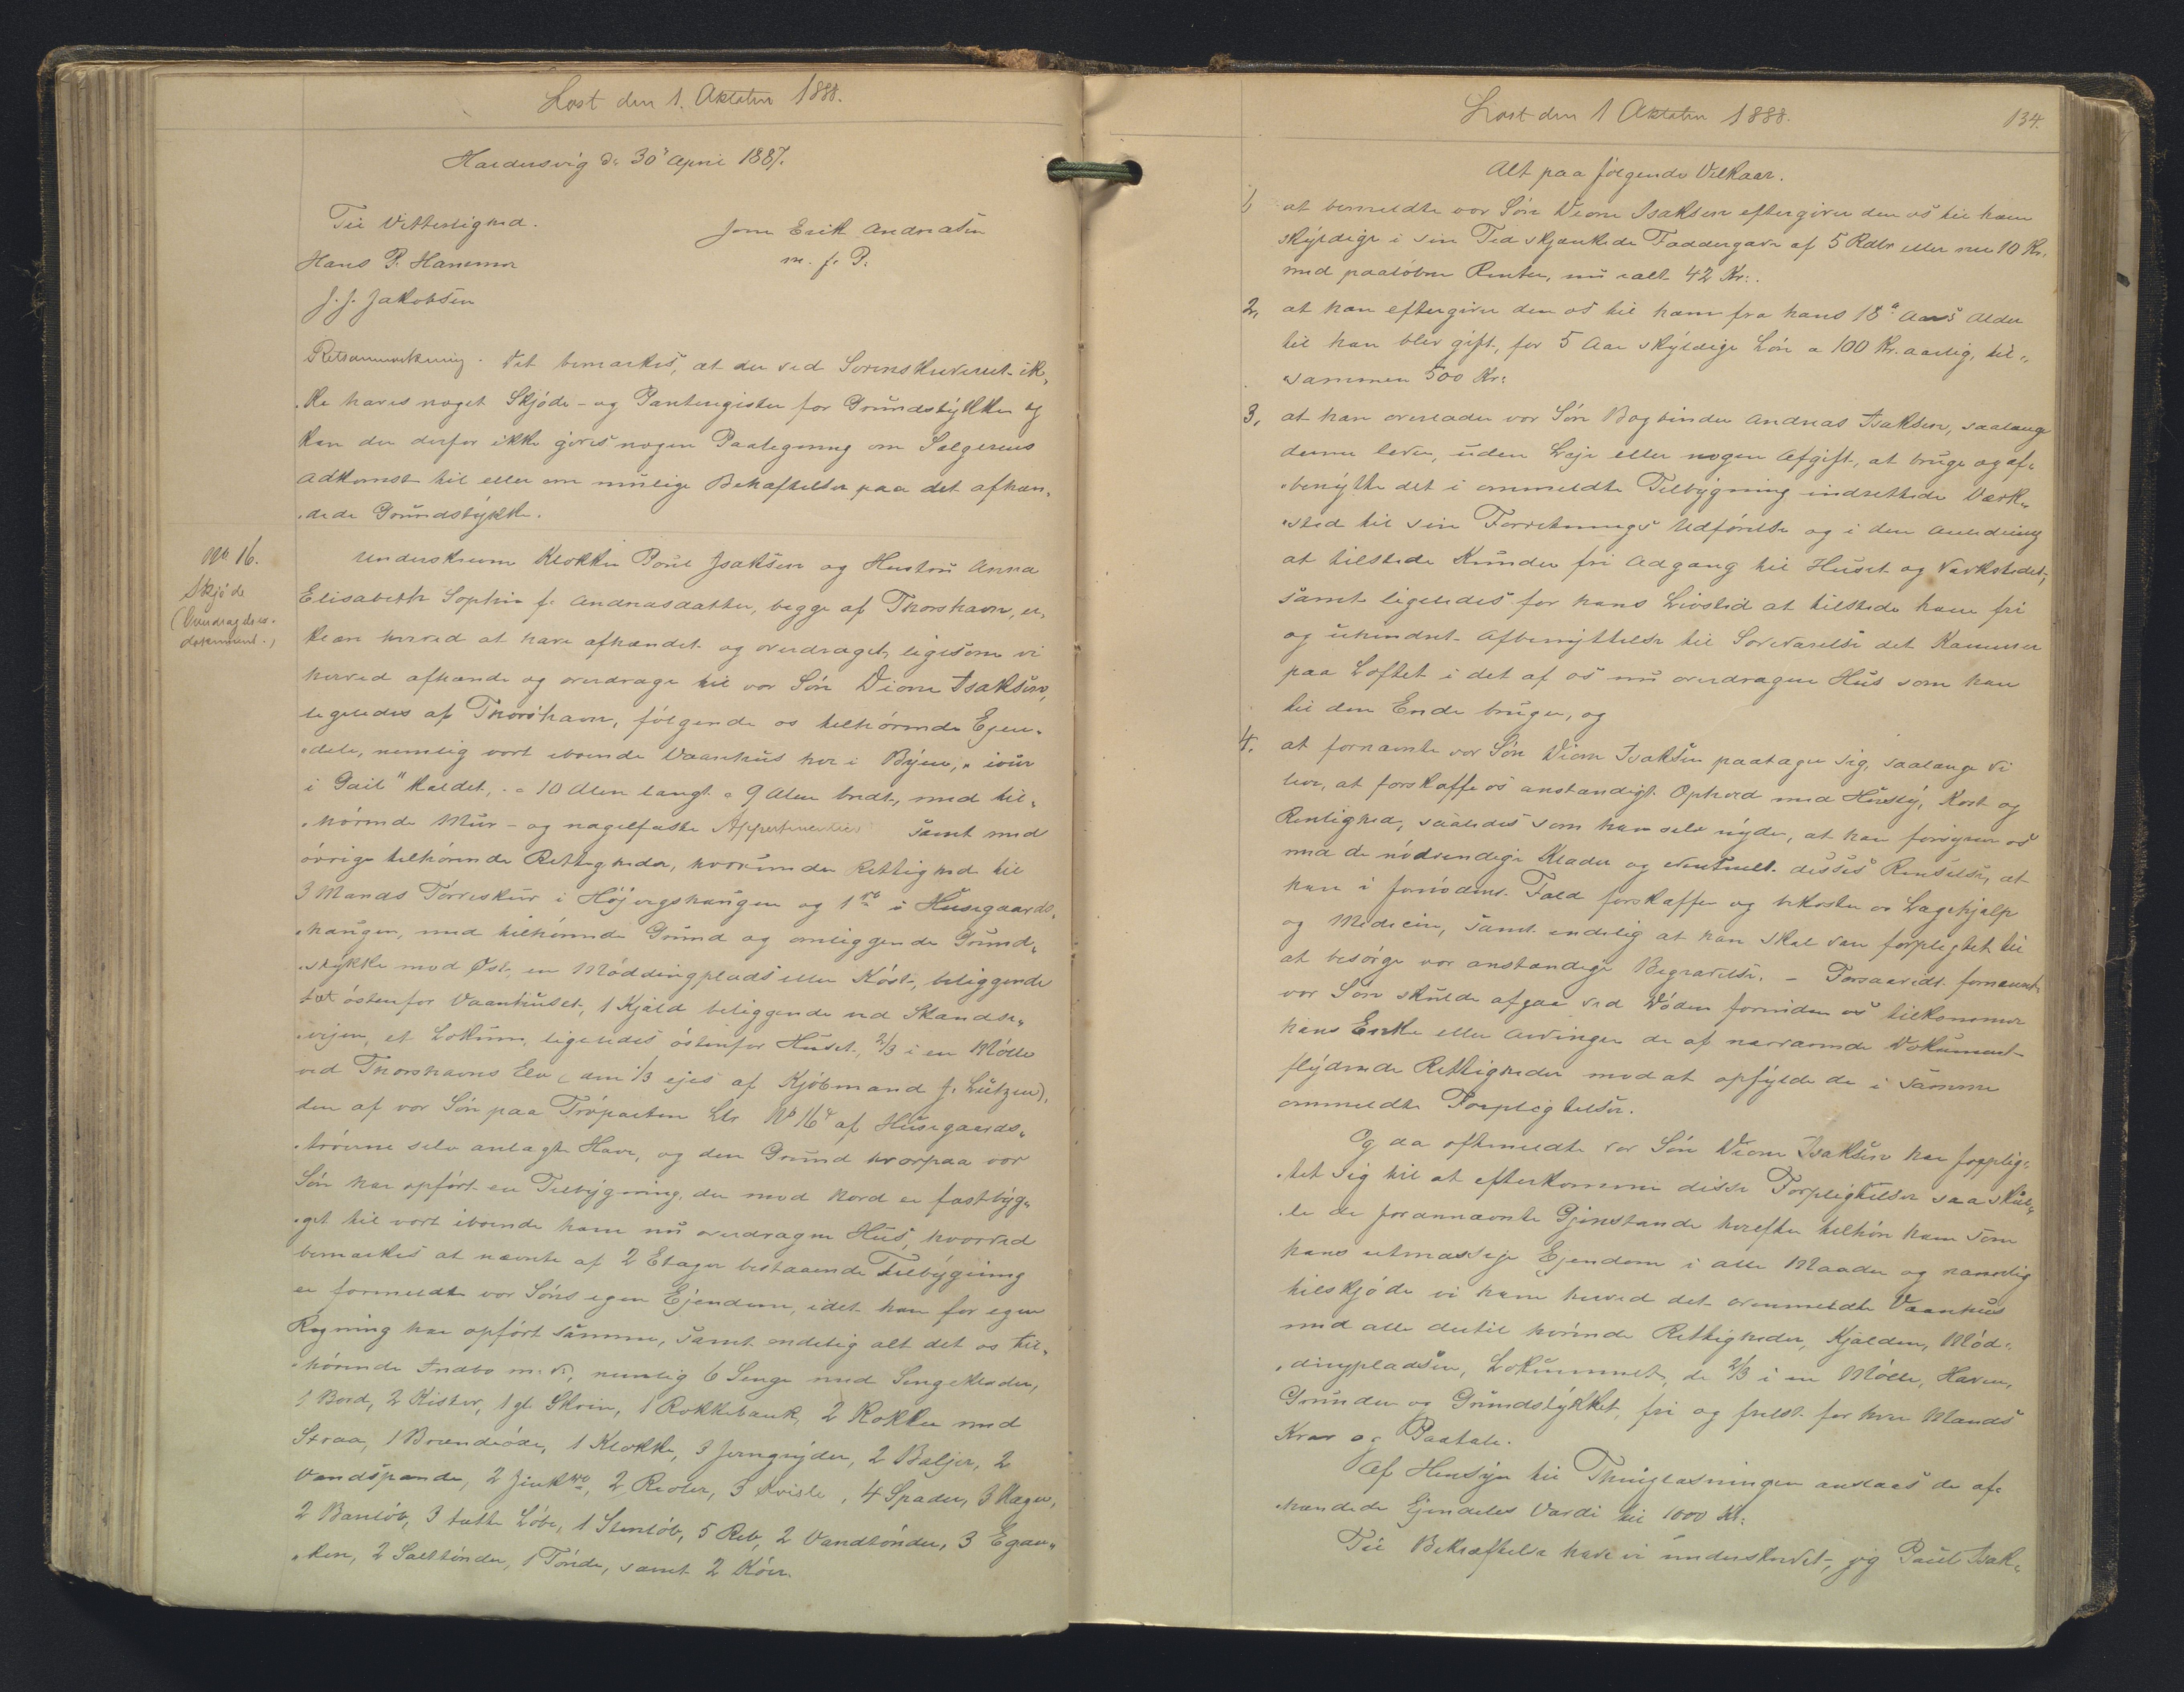 Læst den 1. Oktober 1888.
Haldersvig d. 30' April 1887.
Til Vitterlighed.
Jens Erik Andreasen
Hans P. Hansen
m. f. P.
J. J. Jakobsen
Retsanmærkning. Det bemærkes, at der ved Sorenskriveriet ik„
„ke haves noget Skjøde- og Panteregister for Grundstykker og
kan der derfor ikke gives nogen Paategning om Sælgerens
Adkomst til eller om mulige Behæftelser paa det afhæn„
„dede Grundstykke.
No 16.
Skjøde
(Overdragelses-
dokument.)
Underskrevne Klokker Poul Isaksen og Hustru Anna
Elisabeth Sophie f. Andreasdatter, begge af Thorshavn, er„
klære herved at have afhændet og overdraget, ligesom vi
herved afhænde og overdrage til vor Søn Dione Isaksen,
ligeledes af Thorshavn, følgende os tilhørende Ejen„
„dele, nemlig vort iboende Vaanhus her i Byen, „ivur
i Gail" kaldet, - a 10 Alen langt a 9 Alen bredt, med til„
„hørende Mur- og nagelfaste Appertinentier samt med
øvrige tilhørende Rettigheder, hvorunder Rettighed til
3 Mands Tørveskur i Højvigshaugen og 1 do i Husegaards„
„haugen, med tilhørende Grund og omliggende Grund„
„stykke mod Øst, en Møddingplads eller Køst, beliggende
tæt østenfor Vaanhuset, 1 Kjæld beliggende ved Skandse„
„vejen, et Lokum, ligeledes østenfor Huset, 2/3 i en Mølle
ved Thorshavns Elv (den 1/3 ejes af Kjøbmand J. Lützen),
den af vor Søn paa Trøparten Ltr No 16 af Husegaards„
„trøerne selv anlagte Have, og den Grund hvorpaa vor
Søn har opført en Tilbygning, der mod Nord er fastbyg„
„get til vort iboende ham nu overdragne Hus, hvorved
bemærkes at nævnte af 2 Etager bestaaende Tilbygning
er formeldte vor Søns egen Ejendom, idet han for egen
Regning har opført samme, samt endelig alt det os til„
„hørende Indbo m. V., nemlig 6 Senge med Sengeklæder,
1 Bord, 2 Kister, 1 gl. Skrin, 1 Rokkebænk, 2 Rokker med
Straa, 1 Brændeøxe, 1 Klokke, 3 Jerngryder, 2 Baljer, 2
Vandspande, 2 Zink do, 2 Reoler, 3 Kvisle, 4 Spader, 3 Hager,
2 Banløb, 3 tætte Løbe, 1 Stenløb, 5 Reb, 2 Vandtønder, 3 Egan„
„ker, 2 Salttønder, 1 Tønde, samt 2 Køer.
Læst den 1 Oktober 1888.
134.
Alt paa følgende Vilkaar.
1, at bemeldte vor Søn Dione Isaksen eftergiver den os til ham
skyldige i sin Tid skjænkede Faddergave af 5 Rdlr eller nu 10 Kr.
med paaløbne Renter, nu i alt 42 Kr.
2, at han eftergiver den os til ham fra hans 18de Aars Alder
til han blev gift, for 5 Aar skyldige Løn a 100 Kr. aarlig, til„
„sammen 500 Kr:
3, at han overlader vor Søn Bogbinder Andreas Isaksen, saalænge
denne lever, uden Leje eller nogen Afgift, at bruge og af„
„benytte det i ommeldte Tilbygning indrettede Værk„
„sted til sin Forretnings Udførelse og i den Anledning
at tilstede Kunder fri Adgang til Huset og Værkstedet,
samt ligeledes for hans Livstid at tilstede ham fri
og uhindret Afbenyttelse til Soveværelse det Kammer
paa Loftet i det af os nu overdragne Hus som han
til den Ende bruger, og
4. at fornævnte vor Søn Dione Isaksen paatager sig, saalænge vi
lever, at forskaffe os anstændigt Ophold med Husly, Kost og
Renlighed, saaledes som han selv nyder, at han forsyner os
med de nødvendige Klæder og eventuelt disses Renselse, at
han i fornødent Fald forskaffer og bekoster os Lægehjælp
og Medicin, samt endelig at han skal være forpligtet til
at besørge vor anstændige Begravelse. - Forsaavidt fornævnte
vor Søn skulde afgaa ved Døden forinden os tilkommer
hans Enke eller Arvinger de af nærværende Dokument
flydende Rettigheder mod at opfylde de i samme
ommeldte Forpligtelser.
Og da oftmeldte vor Søn Dione Isaksen har forplig„
„tet sig til at efterkomme disse Forpligtelser saa skul„
„le de forannævnte Gjenstande herefter tilhøre ham som
hans retmæssige Ejendom i alle Maader og navnlig
tilskjøde vi ham herved det ovenmeldte Vaanhus
med alle dertil hørende Rettigheder, Kjælden, Mød„
„dingpladsen, Lokummet, de 2/3 i en Mølle, Haven,
Grunden og Grundstykket, fri og frelst for hver Mands
Krav og Paatale.
Af Hensyn til Thinglæsningen ansiaas de af„
„hændede Ejendeles Værdi til 1000 Kr:
Til Bekræftelse have vi underskrevet, jeg Poul Isak„